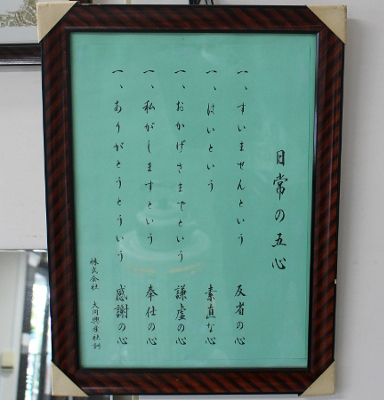 日常の五心
一、すいませんという 反省の心
一、はいという 素直な心
一、おかげさまでという 謙虚の心
一、私がしますという 奉仕の心
一、ありがとうとういう 感謝の心
株式会社 大川興産社訓